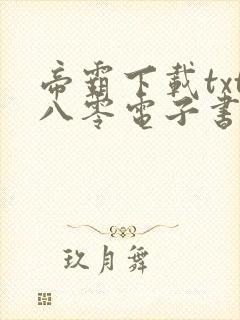 帝霸下載txt
八零電子書
玖月舞